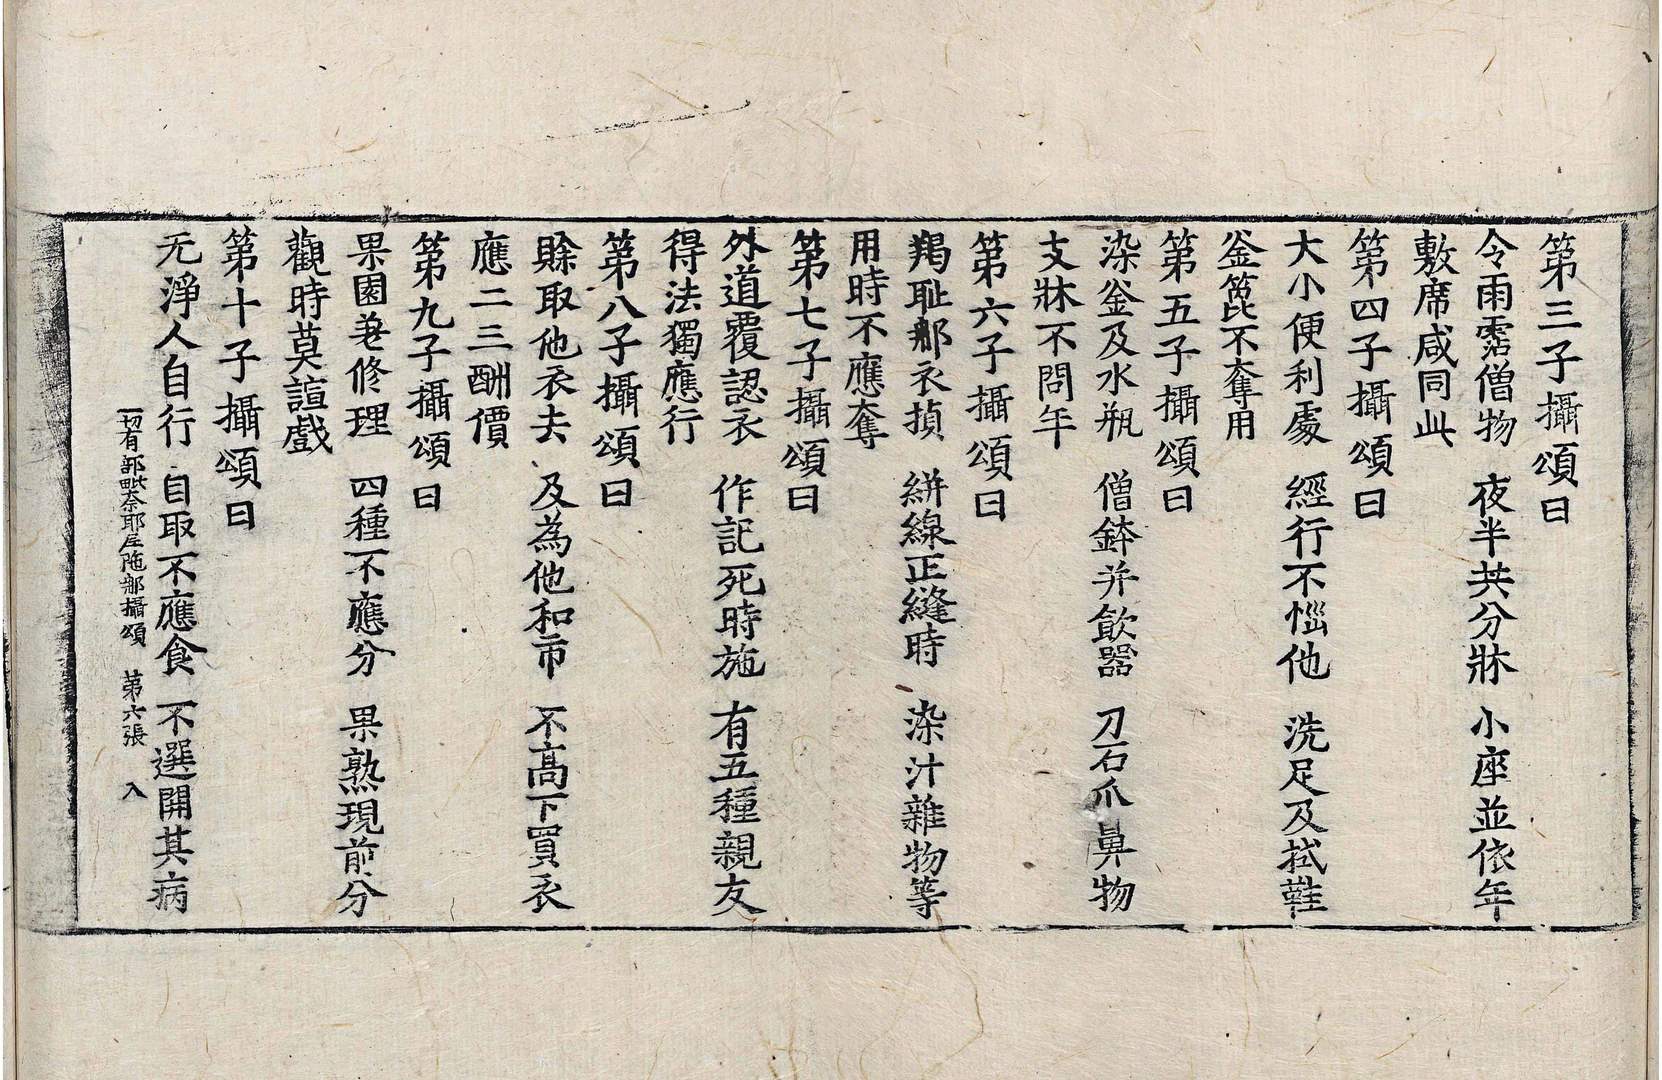 第三子攝頌曰
令雨霑僧物　夜半共分牀　小座並依年
敷席咸同此
第四子攝頌曰
大小便利處　經行不惱他　洗足及拭鞋
釜箆不奪用
第五子攝頌曰
染釜及水瓶　僧鉢并飮器　刀石爪鼻物
支牀不問年
第六子攝頌曰
羯耻那衣揁　絣線正縫時　染汁雜物等
用時不應奪
第七子攝頌曰
外道覆認衣　作記死時施　有五種親友
得法獨應行
第八子攝頌曰
賒取他衣去　及為他和市　不高下買衣
應二三酬價
第九子攝頌曰
果園兼修理　四種不應分　果熟現前分
觀時莫諠戲
第十子攝頌曰
无淨人自行　自取不應食　不選開其病
一切有部毗奈耶尼陁那攝頌　第六張　入